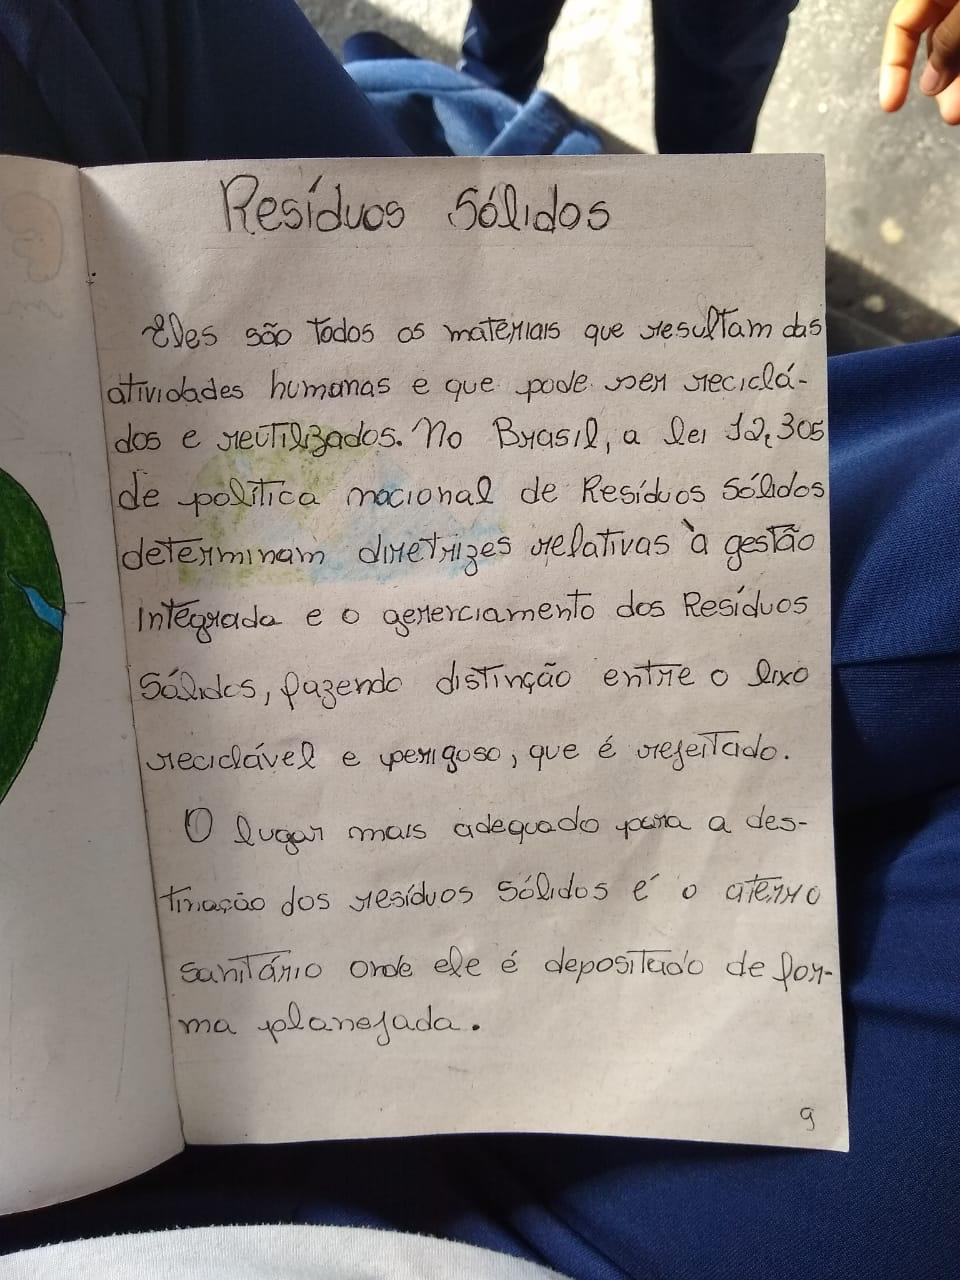 Resíduos Sólidos
Eles são todos os materiais que resultam das
atividades humanas e que pode ser reciclá-
dos e reutilizados. No Brasil, a lei 12,305
de política nacional de Resíduos Sólidos
determinam diretrizes relativas à gestão
Integrada e o gererciamento dos Resíduos
Sólidos, fazendo distinção entre o lixo
reciclável e perigoso, que é rejeitado.
O lugar mais adequado para a des-
tinação dos resíduos sólidos é o aterro
sanitário onde ele é depositado de for-
ma planejada.
9